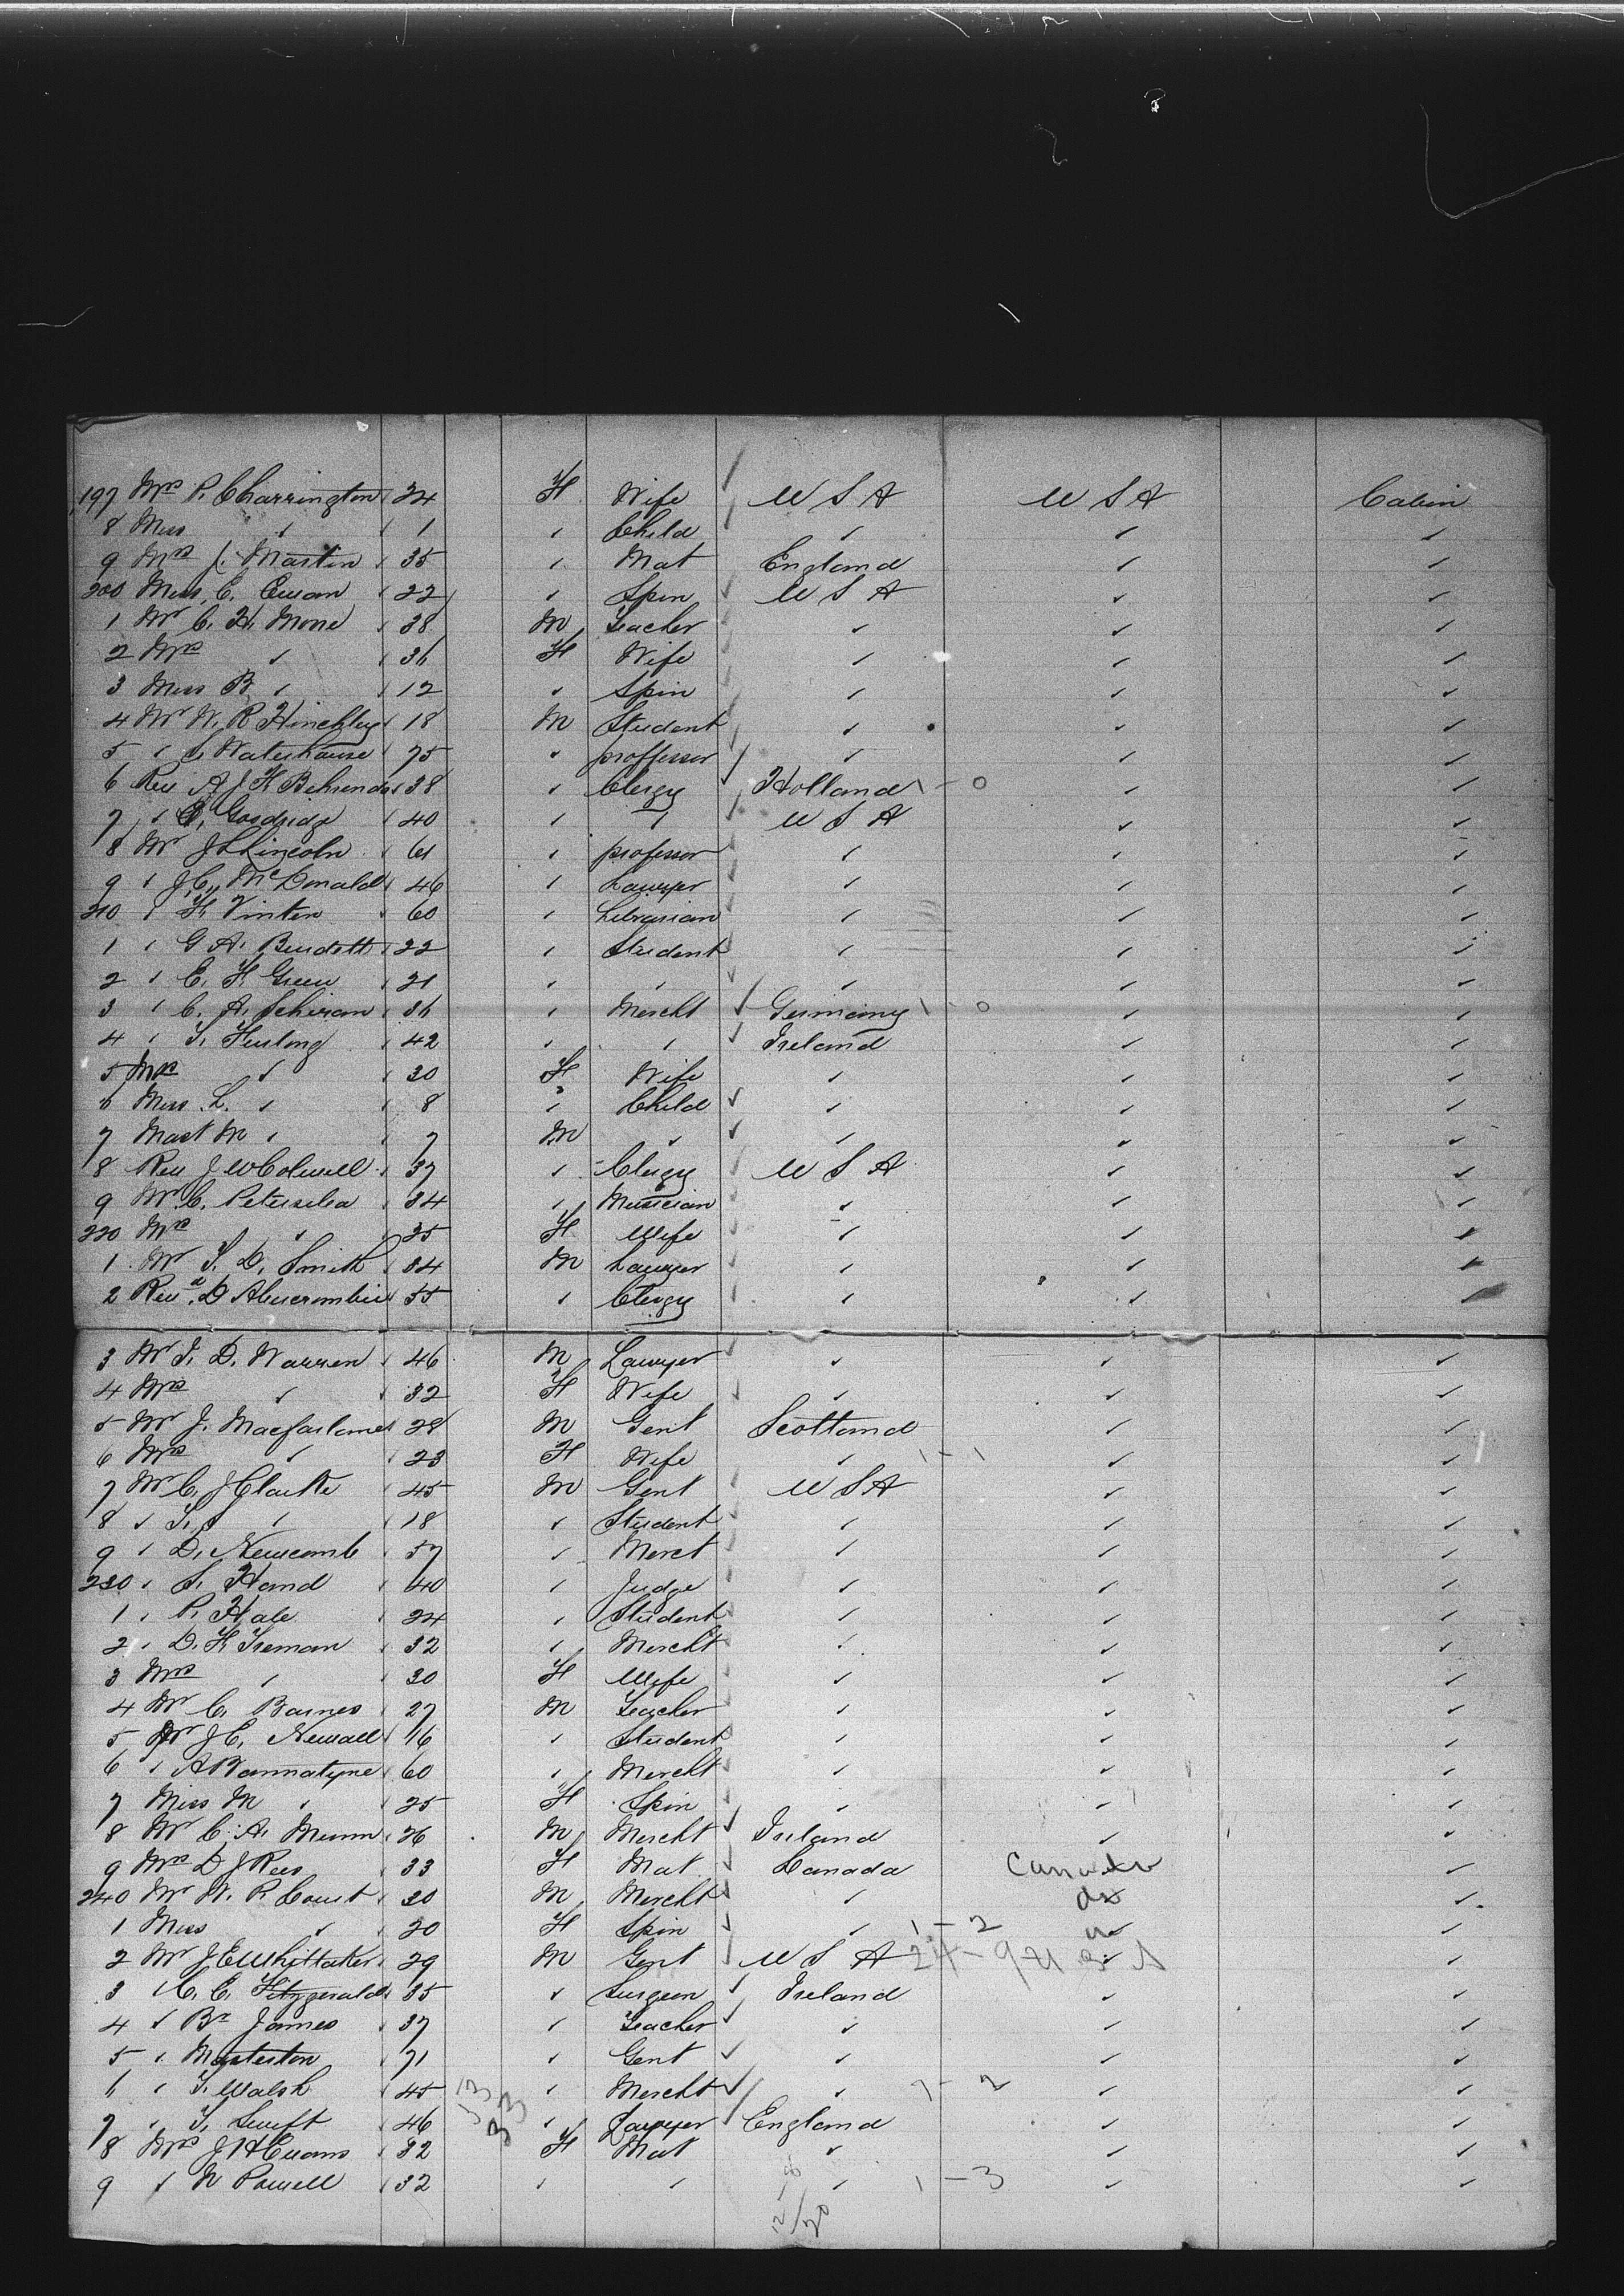 197 Mrs P. Charrington 34 F Wife U S A U S A Cabin
8 Miss ✓ 1 ✓ Child ✓ ✓ ✓
9 Mrs J. Martin 35 ✓ Mat England ✓ ✓
200 Miss E. 22 ✓ Spin U S A ✓ ✓
1 Mr C. H. Morse 38 M Teacher ✓ ✓ ✓
2 Mrs ✓ 36 F Wife ✓ ✓ ✓
3 Miss B ✓ 12 ✓ Spin ✓ ✓ ✓
4 Mr W. R Hinchley 18 M Student ✓ ✓ ✓
5 ✓ S. Waterhouse 75 ✓ proffessor ✓ ✓ ✓
6 Rev A J F Behrends 38 ✓ Clergy Holland 1 - 0 ✓ ✓
7 ✓ E. Goodridge 40 ✓ ✓ U S A ✓ ✓
8 Mr J L Lincoln 61 ✓ professor ✓ ✓ ✓
9 ✓ J. C. McDonald 46 ✓ Lawyer ✓ ✓ ✓
210 ✓ F. Vinton 60 ✓ Librarian ✓ ✓ ✓
1 ✓ G A. Burdett 22 ✓ Student ✓ ✓ ✓
2 ✓ E. F. Green 21 ✓ ✓ ✓ ✓ ✓
3 ✓ C. A. Schiran 36 ✓ Mercht Germany 1 - 0 ✓ ✓
4 ✓ T. Furlong 42 ✓ ✓ Ireland ✓ ✓
5 Mrs ✓ 30 F Wife ✓ ✓ ✓
6 Miss L. ✓ 8 ✓ Child ✓ ✓ ✓
7 Mast M ✓ 7 M ✓ ✓ ✓ ✓
8 Rev J W Colwell 37 ✓ Clergy U S A ✓ ✓
9 Mr C. Petersilea 34 ✓ Musician ✓ ✓ ✓
220 Mrs ✓ 35 F Wife ✓ ✓ ✓
1 Mr T. D. Smith 34 M Lawyer ✓ ✓ ✓
2 Revd D Abercrombie 55 ✓ Clergy ✓ ✓ ✓
3 Mr I. D. Warren 46 M Lawyer ✓ ✓ ✓
4 Mrs ✓ 32 F Wife ✓ ✓ ✓
5 Mr J. Macfarlane 28 M Gent Scotland ✓ ✓
6 Mrs ✓ 23 F Wife ✓ 1 - 1 ✓ ✓
7 Mr C. J Clarke 45 M Gent U S A ✓ ✓
8 ✓ T. S ✓ 18 ✓ Student ✓ ✓ ✓
9 ✓ D. Newcomb 57 ✓ Merct ✓ ✓ ✓
230 ✓ S. Hand 40 ✓ Judge ✓ ✓ ✓
1 ✓ P. Hale 24 ✓ Student ✓ ✓ ✓
2 ✓ D. F. Treman 32 ✓ Mercht ✓ ✓ ✓
3 Mrs ✓ 30 F Wife ✓ ✓ ✓
4 Mr C. Barnes 27 M Teacher ✓ ✓ ✓
5 Mr J C. Newall 16 ✓ Student ✓ ✓ ✓
6 ✓ A Bannatyne 60 ✓ Mercht ✓ ✓ ✓
7 Miss M ✓ 25 F Spin ✓ ✓ ✓
8 Mr C. A. Munn 26 M Mercht Ireland ✓ ✓
9 Mrs D J Rees 33 F Mat Canada Canada ✓
240 Mr W. R Court 30 M Mercht ✓ do ✓
1 Miss ✓ 20 F Spin ✓ 1 - 2 ✓ ✓
2 Mr J E Whittaker 29 M Gent U S A 24 - 9 U S A ✓
3 ✓ C. E. Fitzgerald 35 ✓ Surgeon Ireland ✓ ✓
4 ✓ Br James 37 ✓ Teacher ✓ ✓ ✓
5 ✓ Masterton 71 ✓ Gent ✓ ✓ ✓
6 ✓ T. Walsh 45 13 ✓ Mercht ✓ 1 - 2 ✓ ✓
7 ✓ T. Swift 46 33 ✓ Lawyer England ✓ ✓
8 Mrs J H Evans 32 F Mat ✓ ✓ ✓
9 ✓ N Powell 32 ✓ ✓ ✓ 1 - 3 ✓ ✓